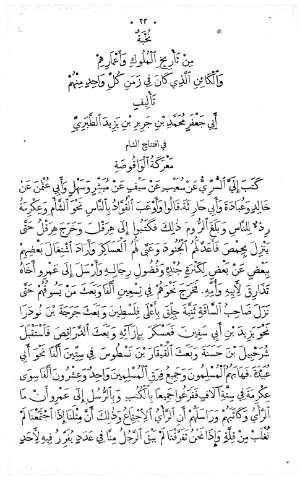 ٢٣
نخبة
مِنْ تَأْرِيخِ الْمُلُوكِ وَأَعْمَارِهِمْ
وَالْكَائِنِ الَّذِي كَانَ فِي زَمَنِ كُلِّ وَاحِدٍ مِنْهُمْ
تَأْلِيف
أَبِي جَعْفَرٍ مُحَمَّدِ بْنِ جَرِيرِ بْنِ يَزِيدَ الطَّبَرِيِّ
في افتتاح الشام
مَعْرَكَةُ الْوَاقُوصَةِ
كَتَبَ إِلَيَّ السَّرِيُّ عَنْ شُعَيْبٍ عَنْ سَيْفٍ عَنْ مُبَشِّرٍ وَسَهْلٍ وَأَبِي عُثْمَنَ عَنْ
خَالِدٍ وَعُبَادَةَ وَأَبِي حَارِثَةَ قَالُوا وَأَوْعَبَ الْقُوَّادُ بِالنَّاسِ نَحْوَ الشَّأْمِ وَعِكْرِمَةُ
رِدْءٌ لِلنَّاسِ وَبَلَغَ الرُّومَ ذٰلِكَ فَكَتَبُوا إِلَى هِرَقْلَ وَخَرَجَ هِرَقْلُ حَتَّى
يَنْزِلَ بِحِمْصَ فَأَعَدَّ لَهُمُ الْجُنُودَ وَعَبَّى لَهُمُ الْعَسَاكِرَ وَأَرَادَ اشْتِغَالَ بَعْضِهِمْ
بِبَعْضٍ عَنْ بَعْضٍ لِكَثْرَةِ جُنْدِهِ وَفُضُولِ رِجَالِهِ وَأَرْسَلَ إِلَى عَمْرٍو أَخَاهُ
تَذَارِقَ لِأَبِيهِ وَأُمِّهِ. فَخَرَجَ نَحْوَهُمْ فِي تِسْعِينَ أَلْفًا وَبَعَثَ مَنْ يَسُوقُهُمْ حَتَّى
نَزَلَ صَاحِبُ السَّاقَةِ ثَنِيَّةَ جِلَّقَ بِأَعْلَى فِلَسْطِينَ وَبَعَثَ جَرَجَةَ بْنَ تُوذَرَا
نَحْوَ يَزِيدَ بْنِ أَبِي سُفْيَنَ فَعَسْكَرَ بِإِزَائِهِ وَبَعَثَ الدُّرَاقِصَ فَاسْتَقْبَلَ
شُرَحْبِيلَ بْنَ حَسَنَةَ وَبَعَثَ الْفِيقَارَ بْنَ نَسْطُوسَ فِي سِتِّينَ أَلْفًا نَحْوَ أَبِي
عُبَيْدَةَ فَهَابَهُمُ الْمُسْلِمُونَ وَجَمِيعُ فِرَقِ الْمُسْلِمِينَ وَاحِدٌ وَعِشْرُونَ أَلْفًا سِوَى
عِكْرِمَةَ فِي سِتَّةِ آلَافٍ فَفَزِعُوا جَمِيعًا بِالْكُتُبِ وَبِالرُّسُلِ إِلَى عَمْرٍو أَنْ مَا
الرَّأْيُ فَكَاتَبَهُمْ وَرَاسَلَهُمْ أَنَّ الرَّأْيَ الِاجْتِمَاعُ وَذٰلِكَ أَنَّ مِثْلَنَا إِذَا اجْتَمَعْنَا لَمْ
نُغْلَبْ مِنْ قِلَّةٍ وَإِذَا نَحْنُ تَفَرَّقْنَا لَمْ يَبْقَ الرَّجُلُ مِنَّا فِي عَدَدٍ يَقْرِنُ فِيهِ لِأَحَدٍ